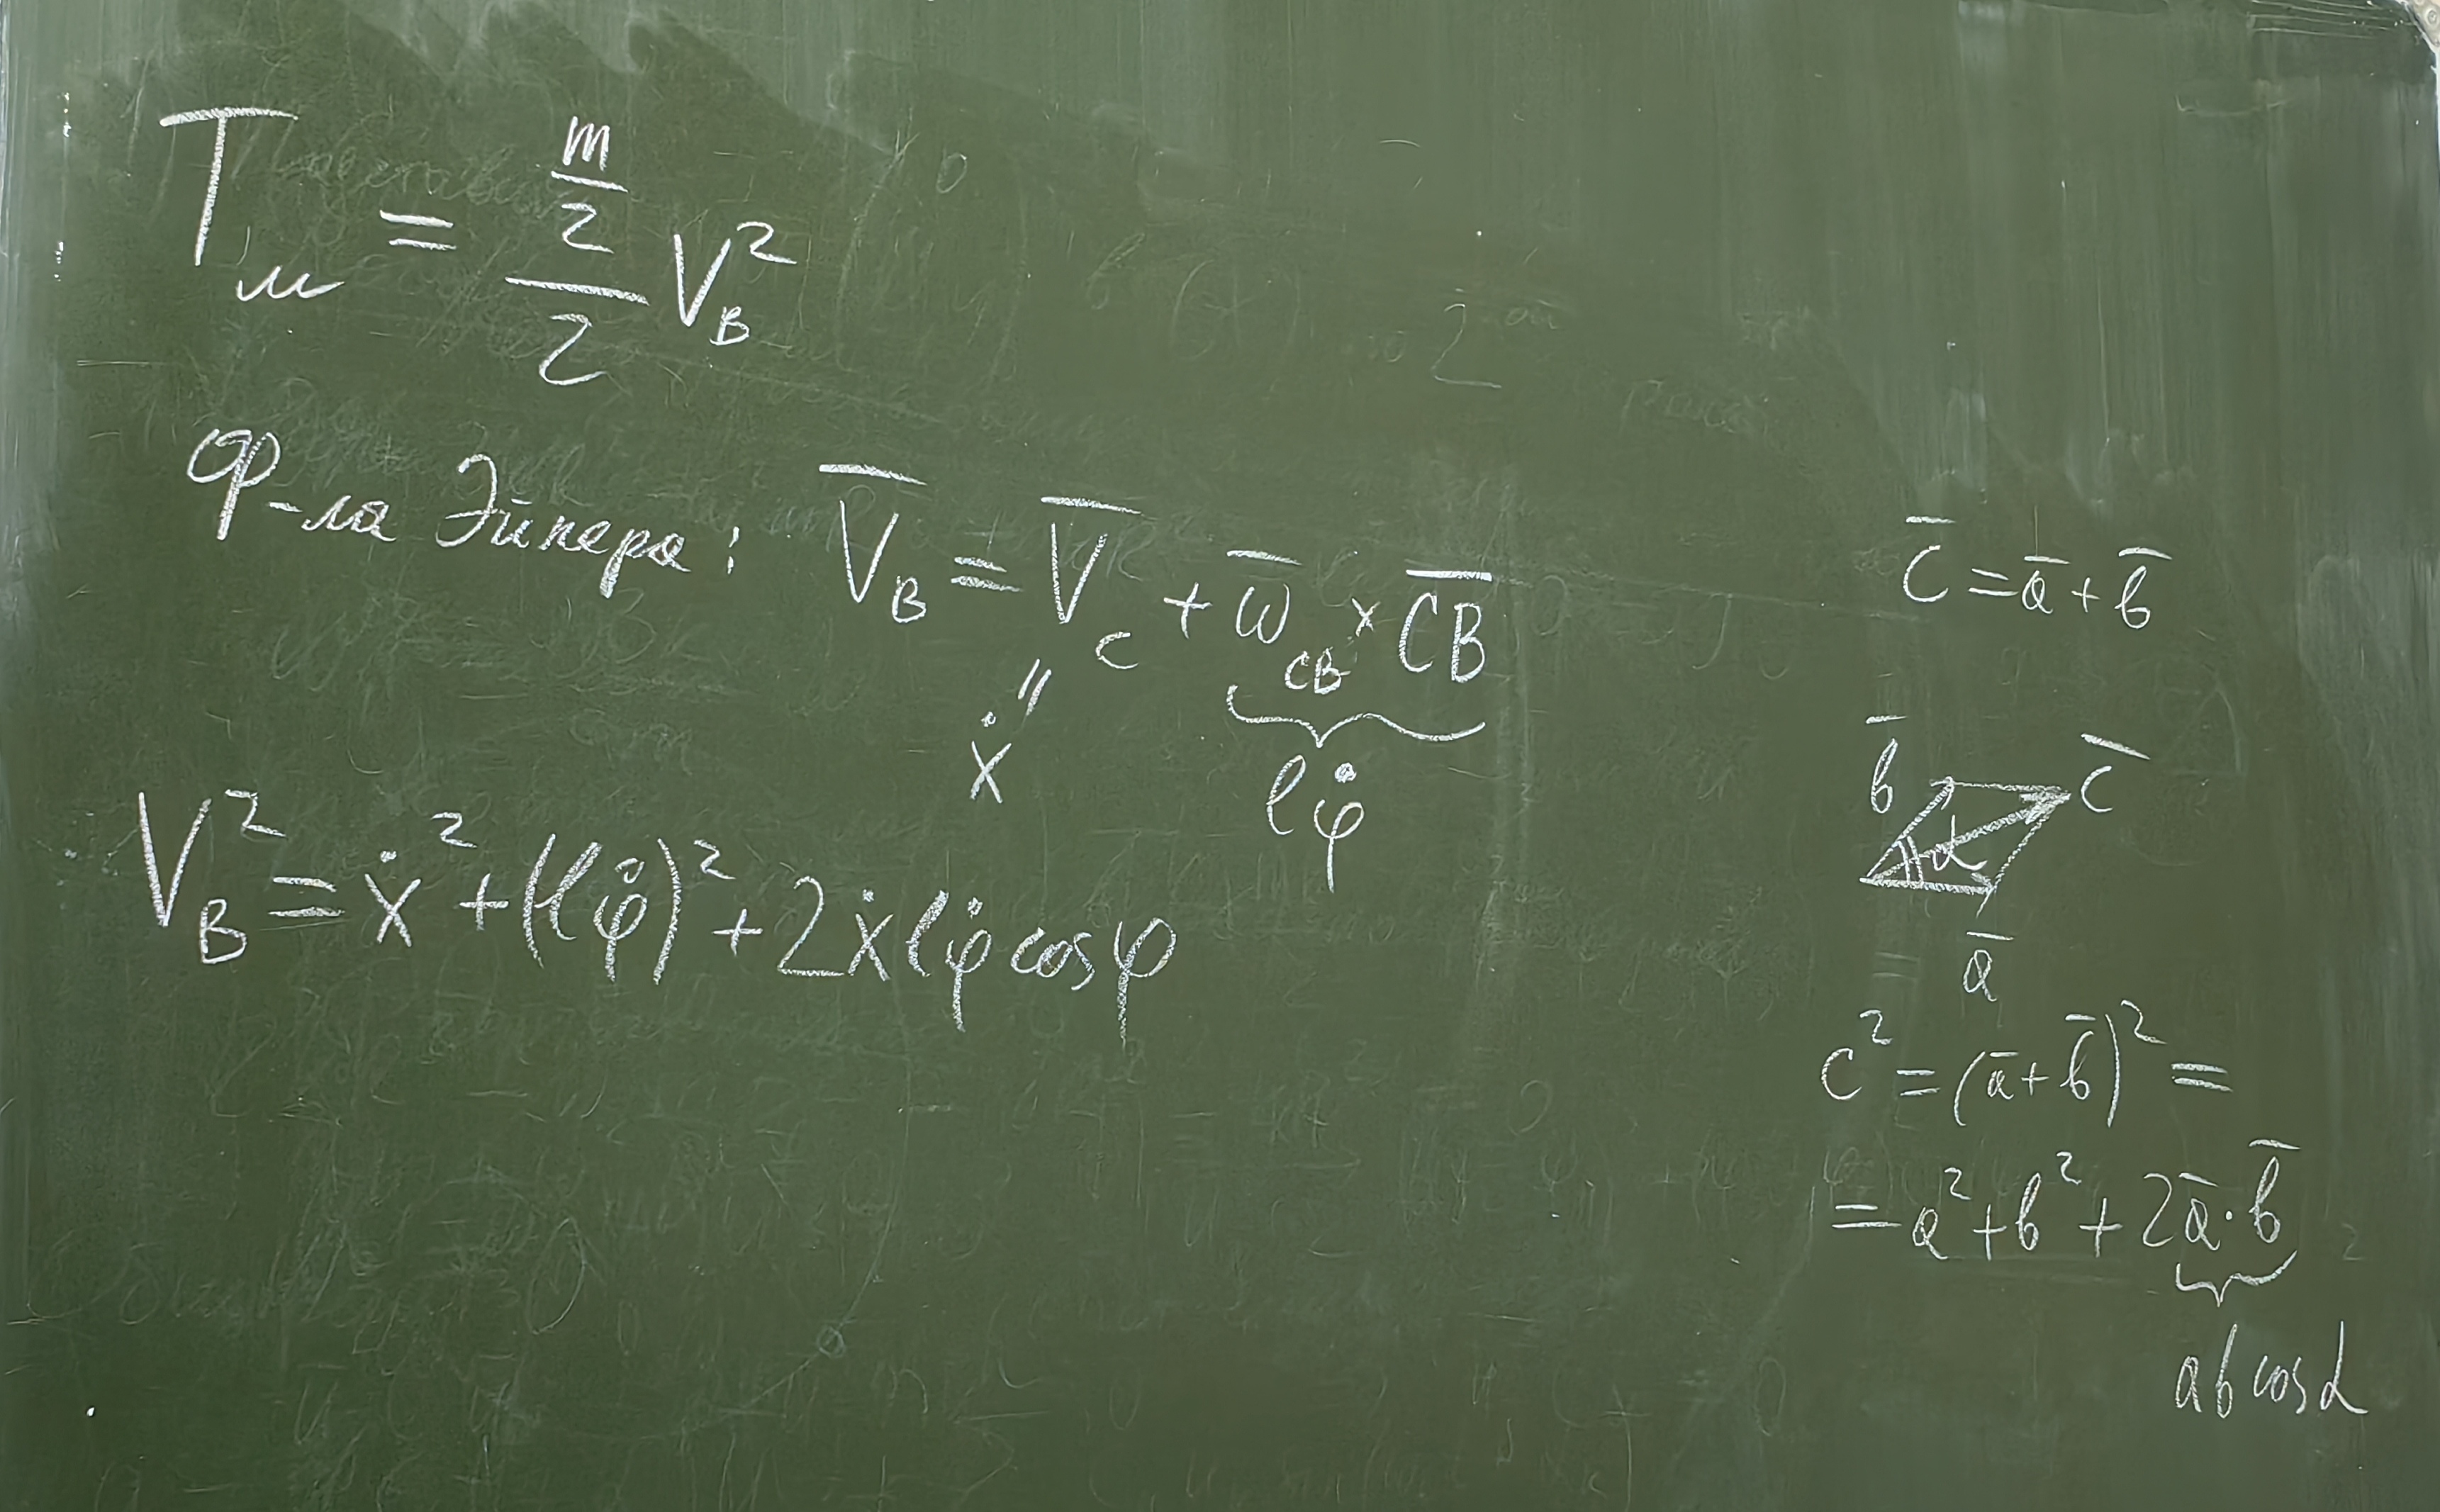 Tм = m/2 / 2 V_B²
ф-ла Эйлера: V̅_B = V̅_C + ω̅_CB × C̅B̅
" 
ẋ
lφ̇
V_B² = ẋ² + (lφ̇)² + 2ẋlφ̇cosφ
c̅ = a̅ + b̅
b̅ c̅
α
a̅
c² = (a̅ + b̅)² =
= a² + b² + 2a̅·b̅
ab cosα